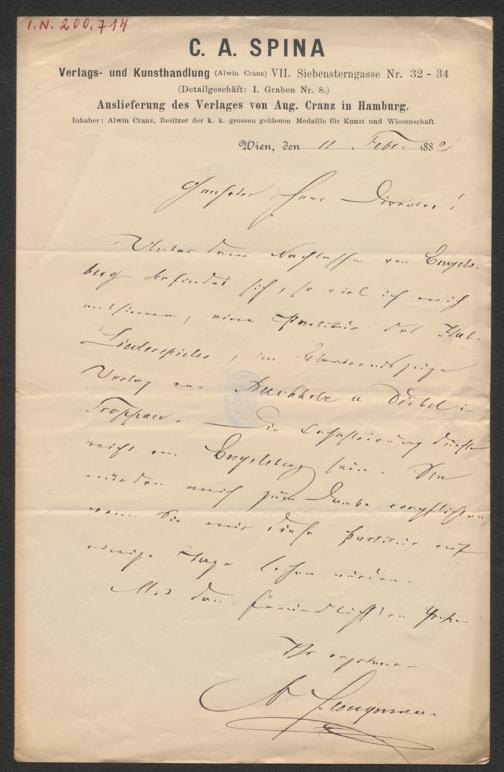 I.N. 200.714
C. A. SPINA
Verlags- und Kunsthandlung (Alwin Cranz) VII. Siebensterngasse Nr. 32 - 34
(Detailgeschäft: I. Graben Nr. 8.)
Auslieferung des Verlages von Aug. Cranz in Hamburg.
Inhaber: Alwin Cranz, Besitzer der k. k. grossen goldenen Medaille für Kunst und Wissenschaft.
Wien, den 11. Febr. 188
Geehrter Herr Director!
Unter dem Nachlasse von Engels-
berg befindet sich, so viel ich mich
entsinne, eine Partitur des
Liederspieles, im Clavierauszuge
Verlag von Buchholz u Diebel in
Troppau. Die dürfte
nicht von Engelsberg sein. Sie
würden mich zum Danke verpflichten,
wenn Sie mir diese Partitur auf
einige Tage leihen würden.
Mit den freundlichsten
Ihr ergebener